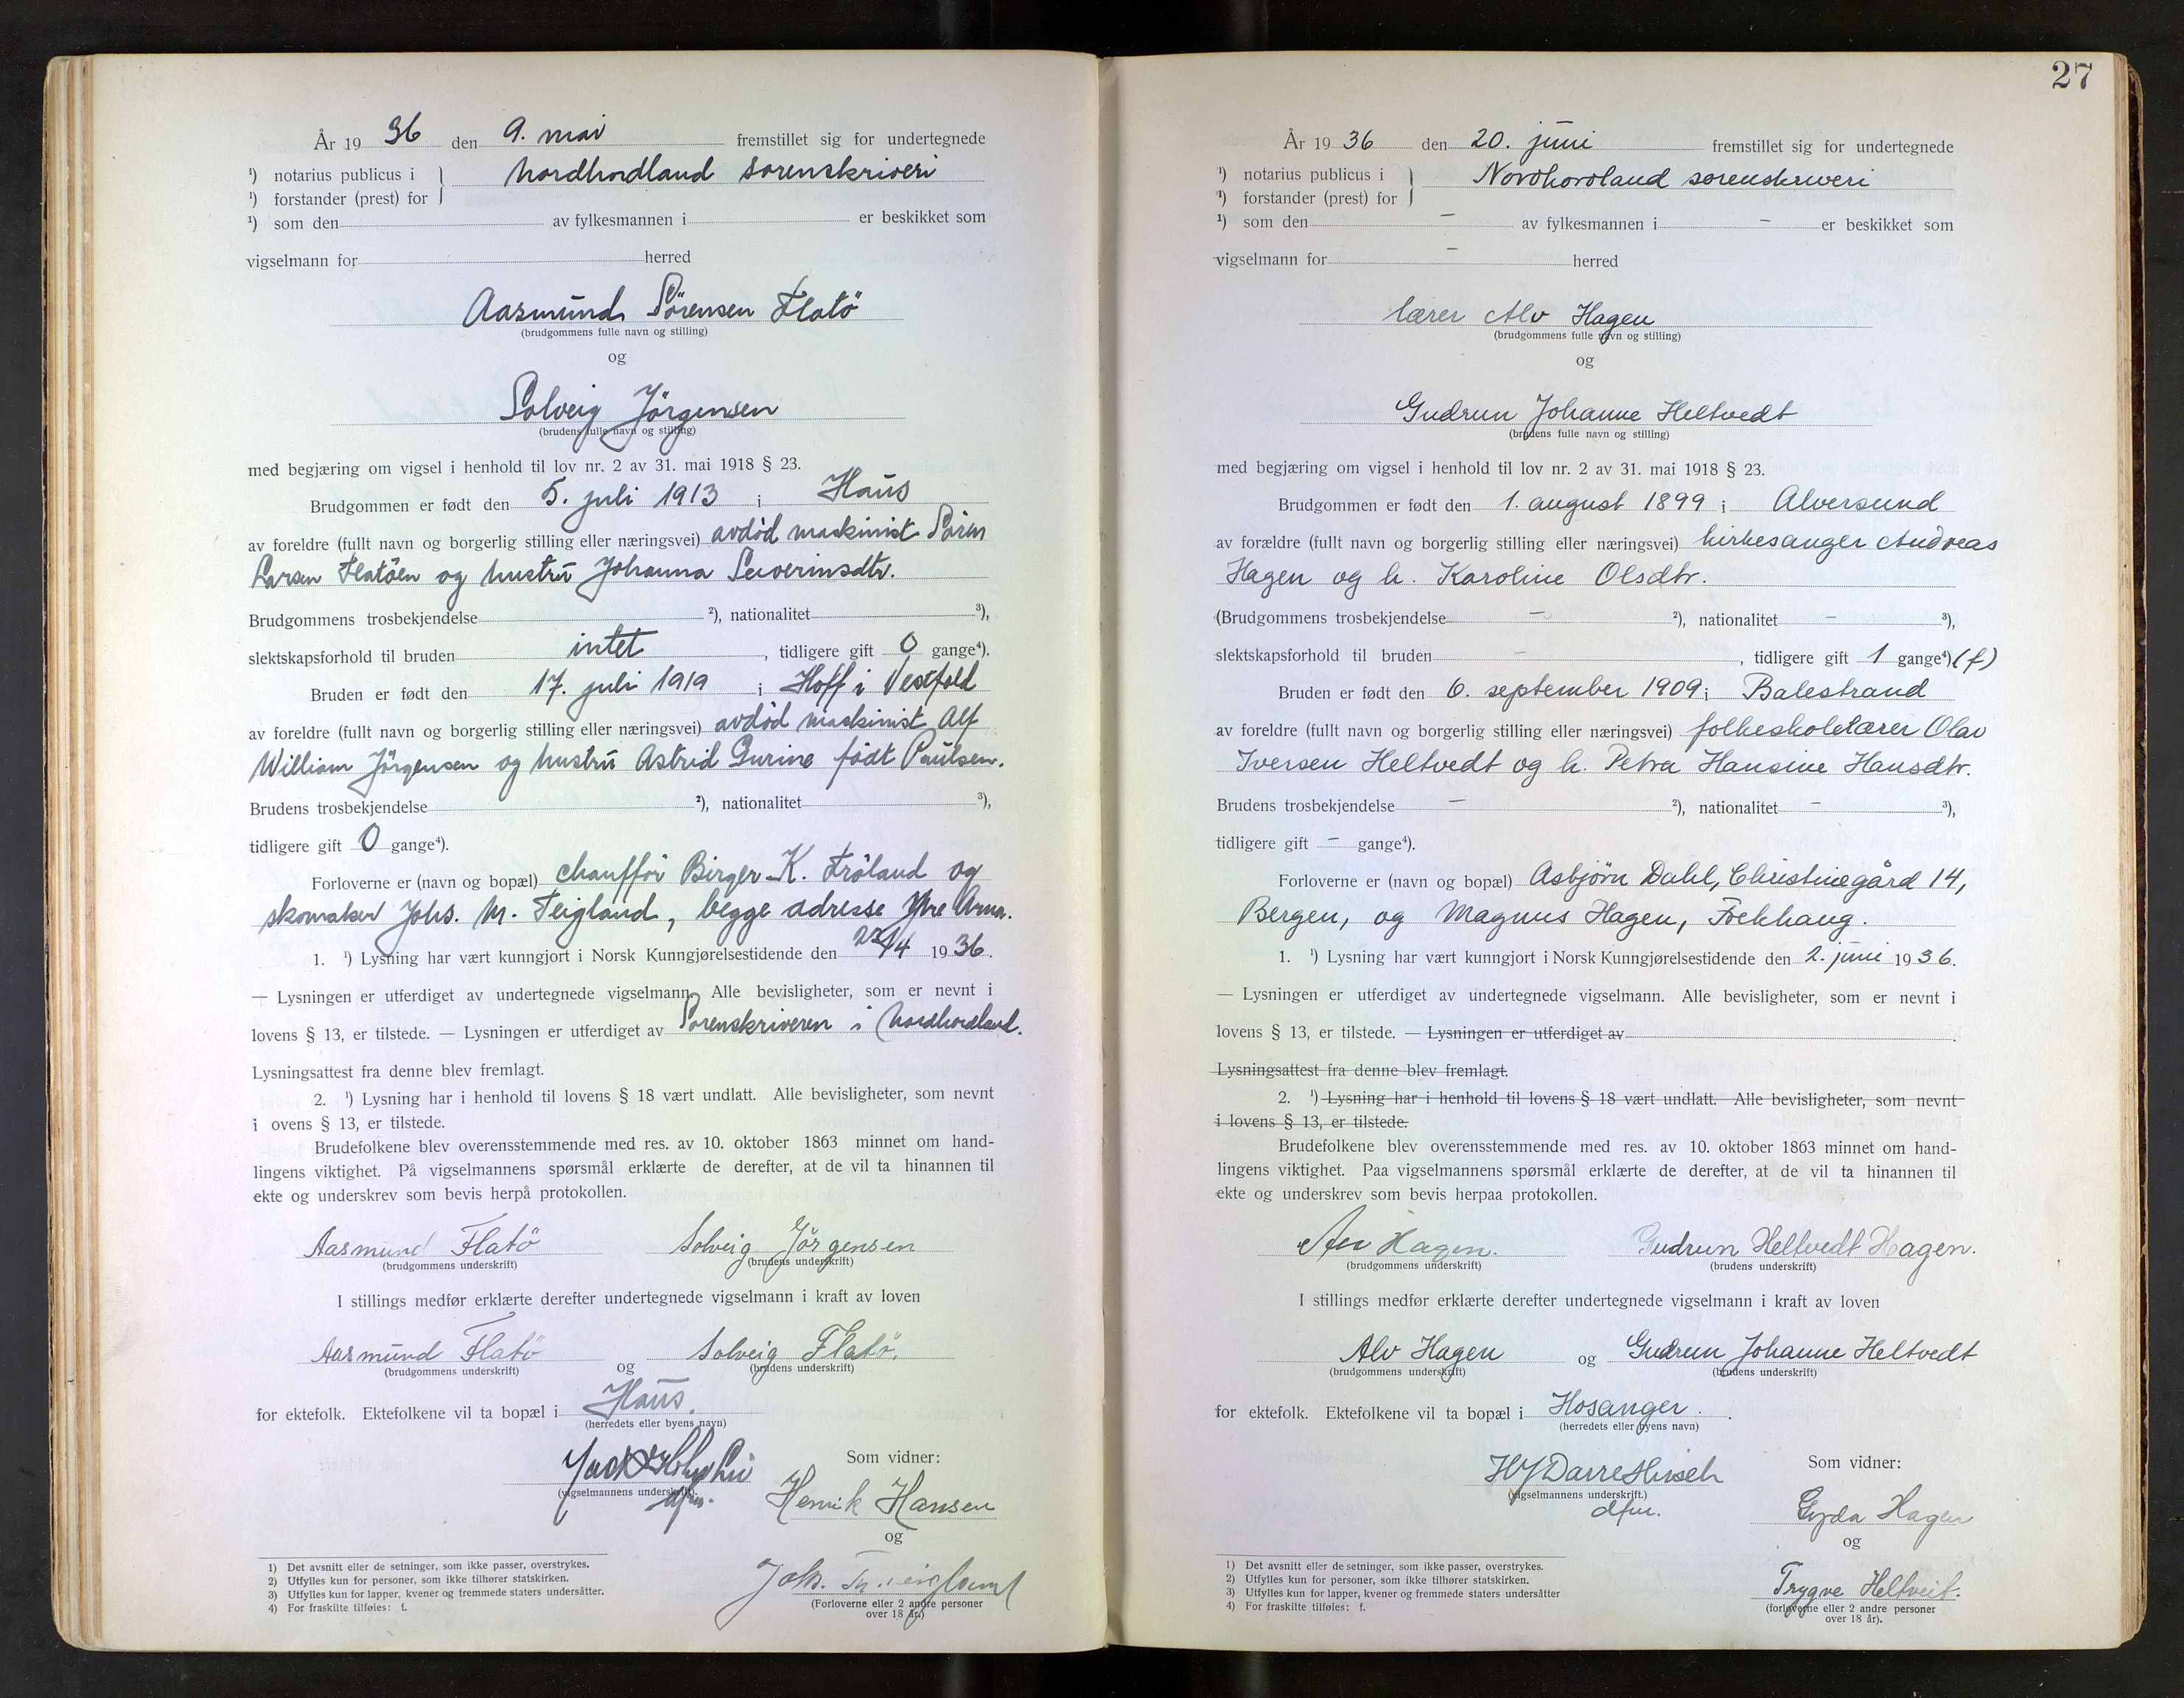 År 19 36 den 9. mai fremstillet sig for undertegnede
¹) notarius publicus i } Nordhordland sorenskriveri
¹) forstander (prest) for
¹) som den av fylkesmannen i er beskikket som
vigselmann for herred
Aasmund Sörensen Flatö
(brudgommens fulle navn og stilling)
og
Solveig Jörgensen
(brudens fulle navn og stilling)
med begjæring om vigsel i henhold til lov nr. 2 av 31. mai 1918 § 23.
Brudgommen er født den 5. juli 1913 i Haus
av foreldre (fullt navn og borgerlig stilling eller næringsvei) avdöd maskinist Sören
Larsen Flatöen og hustru Johanna Severinsdtr.
Brudgommens trosbekjendelse ²), nationalitet ³),
slektskapsforhold til bruden intet, tidligere gift 0 gange⁴).
Bruden er født den 17. juli 1919 i Hoff i Vestfold
av foreldre (fullt navn og borgerlig stilling eller næringsvei) avdöd maskinist Alf
William Jörgensen og hustru Astrid Gurine födt Paulsen.
Brudens trosbekjendelse ²), nationalitet ³),
tidligere gift 0 gange⁴).
Forloverne er (navn og bopæl) chafför Birger K. Fröland og
skomaker Johs. M. Teigland, begge adresse Ytre Arna.
1. ¹) Lysning har vært kunngjort i Norsk Kunngjørelsestidende den /4 1936.
— Lysningen er utferdiget av undertegnede vigselmann. Alle bevisligheter, som er nevnt i
lovens § 13, er tilstede. — Lysningen er utferdiget av Sorenskriveren i Nordhordland.
Lysningsattest fra denne blev fremlagt.
2. ¹) Lysning har i henhold til lovens § 18 vært undlatt. Alle bevisligheter, som nevnt
i ovens § 13, er tilstede.
Brudefolkene blev overensstemmende med res. av 10. oktober 1863 minnet om hand-
lingens viktighet. På vigselmannens spørsmål erklærte de derefter, at de vil ta hinannen til
ekte og underskrev som bevis herpå protokollen.
Aasmund Flatö Solveig Jörgensen
(brudgommens underskrift) (brudens underskrift)
I stillings medfør erklærte derefter undertegnede vigselmann i kraft av loven
Aasmund Flatö og Solveig Flatö.
(brudgommens underskrift) (brudens underskrift)
for ektefolk. Ektefolkene vil ta bopæl i Haus.
(herredets eller byens navn)
Som vidner:
(vigselmannens underskrift).
Henrik Hansen
og
Johs. M. Teigland
(Forloverne eller 2 andre personer
over 18 år.)
1) Det avsnitt eller de setninger, som ikke passer, overstrykes.
2) Utfylles kun for personer, som ikke tilhører statskirken.
3) Utfylles kun for lapper, kvener og fremmede staters undersåtter.
4) For fraskilte tilføies: f.
27
År 19 36 den 20. juni fremstillet sig for undertegnede
¹) notarius publicus i } Nordhordland sorenskriveri
¹) forstander (prest) for
¹) som den – av fylkesmannen i – er beskikket som
vigselmann for – herred
lærer Alv Hagen
(brudgommens fulle navn og stilling)
og
Gudrun Johanne Heltvedt
(brudens fulle navn og stilling)
med begjæring om vigsel i henhold til lov nr. 2 av 31. mai 1918 § 23.
Brudgommen er født den 1. august 1899 i Alversund
av forældre (fullt navn og borgerlig stilling eller næringsvei) kirkesanger Andreas
Hagen og h. Karoline Olsdtr.
(Brudgommens trosbekjendelse – ²), nationalitet – ³),
slektskapsforhold til bruden –, tidligere gift 1 gange⁴) (f)
Bruden er født den 6. september 1909 i Balestrand
av foreldre (fullt navn og borgerlig stilling eller næringsvei) folkeskolelærer Olav
Iversen Heltvedt og h. Petra Hansine Hansdtr.
Brudens trosbekjendelse – ²), nationalitet – ³),
tidligere gift – gange⁴).
Forloverne er (navn og bopæl) Asbjørn Dahl, Christinegård 14,
Bergen, og Magnus Hagen,
1. ¹) Lysning har vært kunngjort i Norsk Kunngjørelsestidende den 2. juni 1936.
— Lysningen er utferdiget av undertegnede vigselmann. Alle bevisligheter, som er nevnt i
lovens § 13, er tilstede. — Lysningen er utferdiget av
Lysningsattest fra denne blev fremlagt.
2. ¹) Lysning har i henhold til lovens § 18 vært undlatt. Alle bevisligheter, som nevnt
i lovens § 13, er tilstede.
Brudefolkene blev overensstemmende med res. av 10. oktober 1863 minnet om hand-
lingens viktighet. Paa vigselmannens spørsmål erklærte de derefter, at de vil ta hinannen til
ekte og underskrev som bevis herpaa protokollen.
Alv Hagen. Gudrun Heltvedt Hagen.
(brudgommens underskrift) (brudens underskrift)
I stillings medfør erklærte derefter undertegnede vigselmann i kraft av loven
Alv Hagen og Gudrun Johanne Heltvedt
(brudgommens underskrift) (brudens underskrift)
for ektefolk. Ektefolkene vil ta bopæl i Hosanger.
(herredets eller byens navn)
HJ Darre Hirsch Som vidner:
(vigselmannens underskrift.)
dfm.
Gyda Hagen
og
Trygve Heltveit.
(forloverne eller 2 andre personer
over 18 år).
1) Det avsnitt eller de setninger, som ikke passer, overstrykes.
2) Utfylles kun for personer, som ikke tilhører statskirken.
3) Utfylles kun for lapper, kvener og fremmede staters undersåtter
4) For fraskilte tilføies: f.